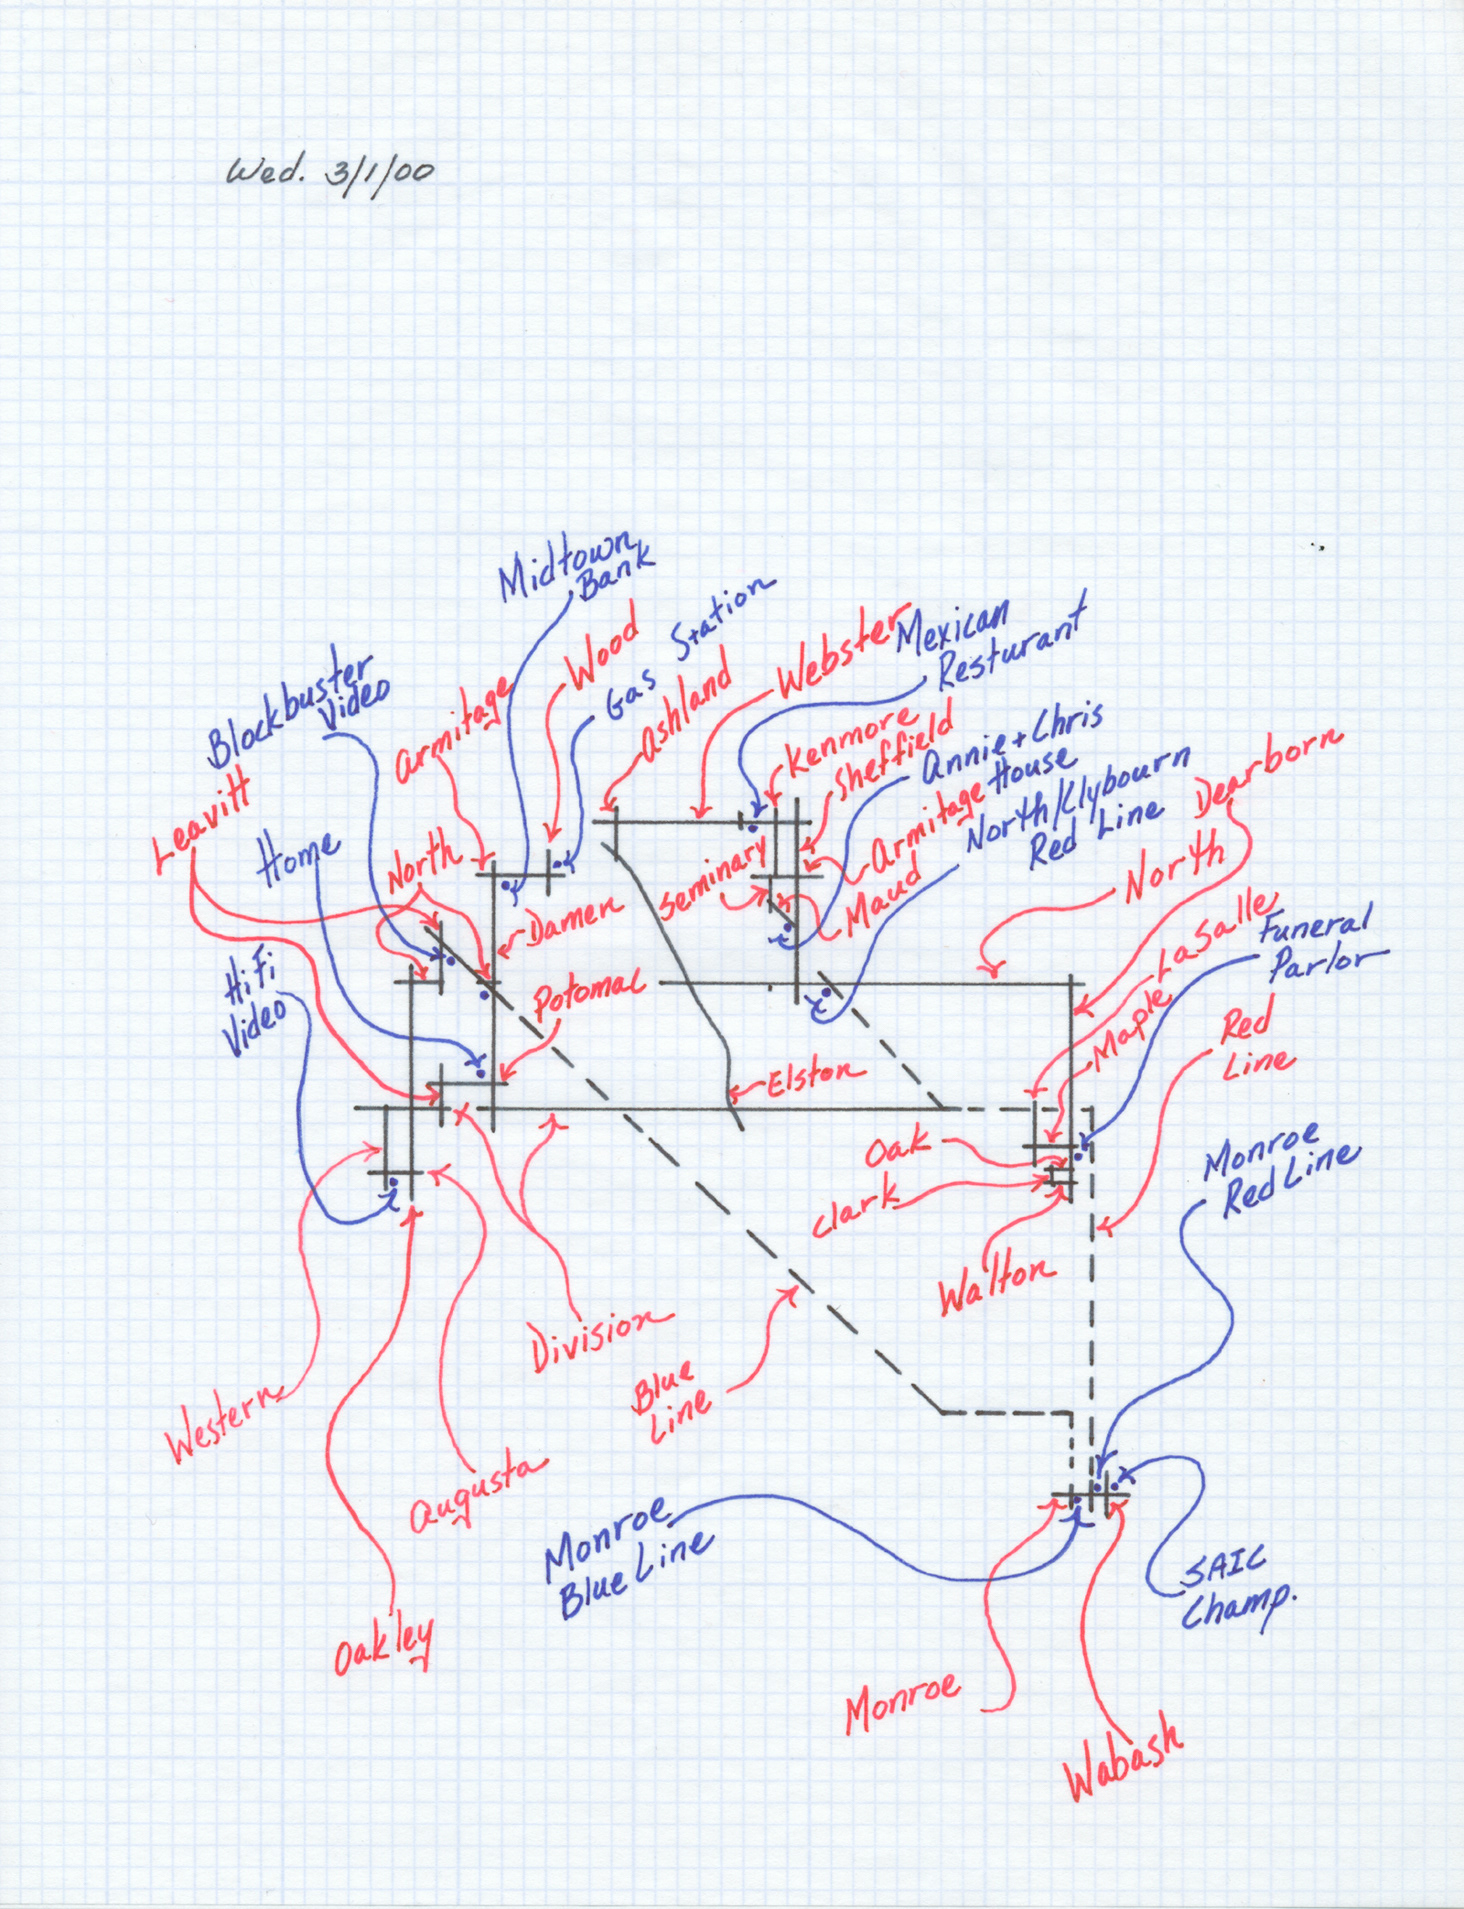 Wed. 3/1/00
Midtown
Bank
Wood
Gas Station
Ashland
Webster
Mexican
Resturant
Blockbuster
Video
Armitage
Kenmore
Sheffield
Annie + Chris
House
Armitage
North/Clybourn
Red Line
Dearborn
Leavitt
Home
North
Seminary
Maud
North
Damen
LaSalle
Funeral
Parlor
HiFi
Video
Potomac
Maple
Red
Line
Elston
Oak
Clark
Monroe
Red Line
Walton
Division
Blue
Line
Western
Augusta
Monroe
Blue Line
SAIC
Champ.
Oakley
Monroe
Wabash